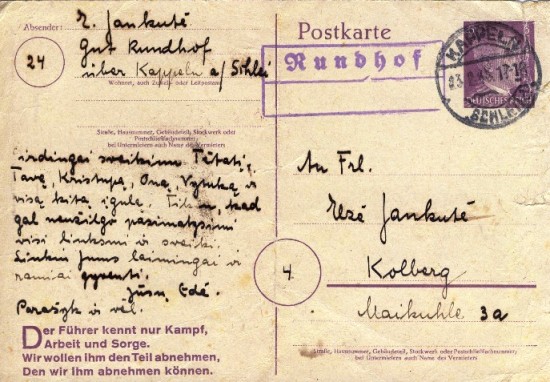 Absender:
E. Jankutė
Gut Rundhof
über Kappeln a/Schlei
Wohnort, auch Zustell- oder Leitpostamt
24
Straße, Hausnummer, Gebäudeteil, Stockwerk oder
Postschließfachnummer;
bei Untermietern auch Name des Vermieters
širdingai sveikinu Tėtatį,
Tavę, Kristupą, Oną, Vytuką ir
visą kitą įgulą. Tikiu, kad
gal neužilgo pasimatysimi
visi linksmi ir sveiki.
Linkiu Jums laimingai ir
ramiai gyventi.
Jūsų Edė.
Parašyk ir vėl.
Der Führer kennt nur Kampf,
Arbeit und Sorge.
Wir wollen ihm den Teil abnehmen,
Den wir ihm abnehmen können.
Postkarte
Rundhof
KAPPELN
DEUTSCHES REICH
An Frl.
Jankutė
4
Kolberg
Maikuhle 3a
Straße, Hausnummer, Gebäudeteil, Stockwerk oder Postschließfachnummer;
bei Untermietern auch Name des Vermieters